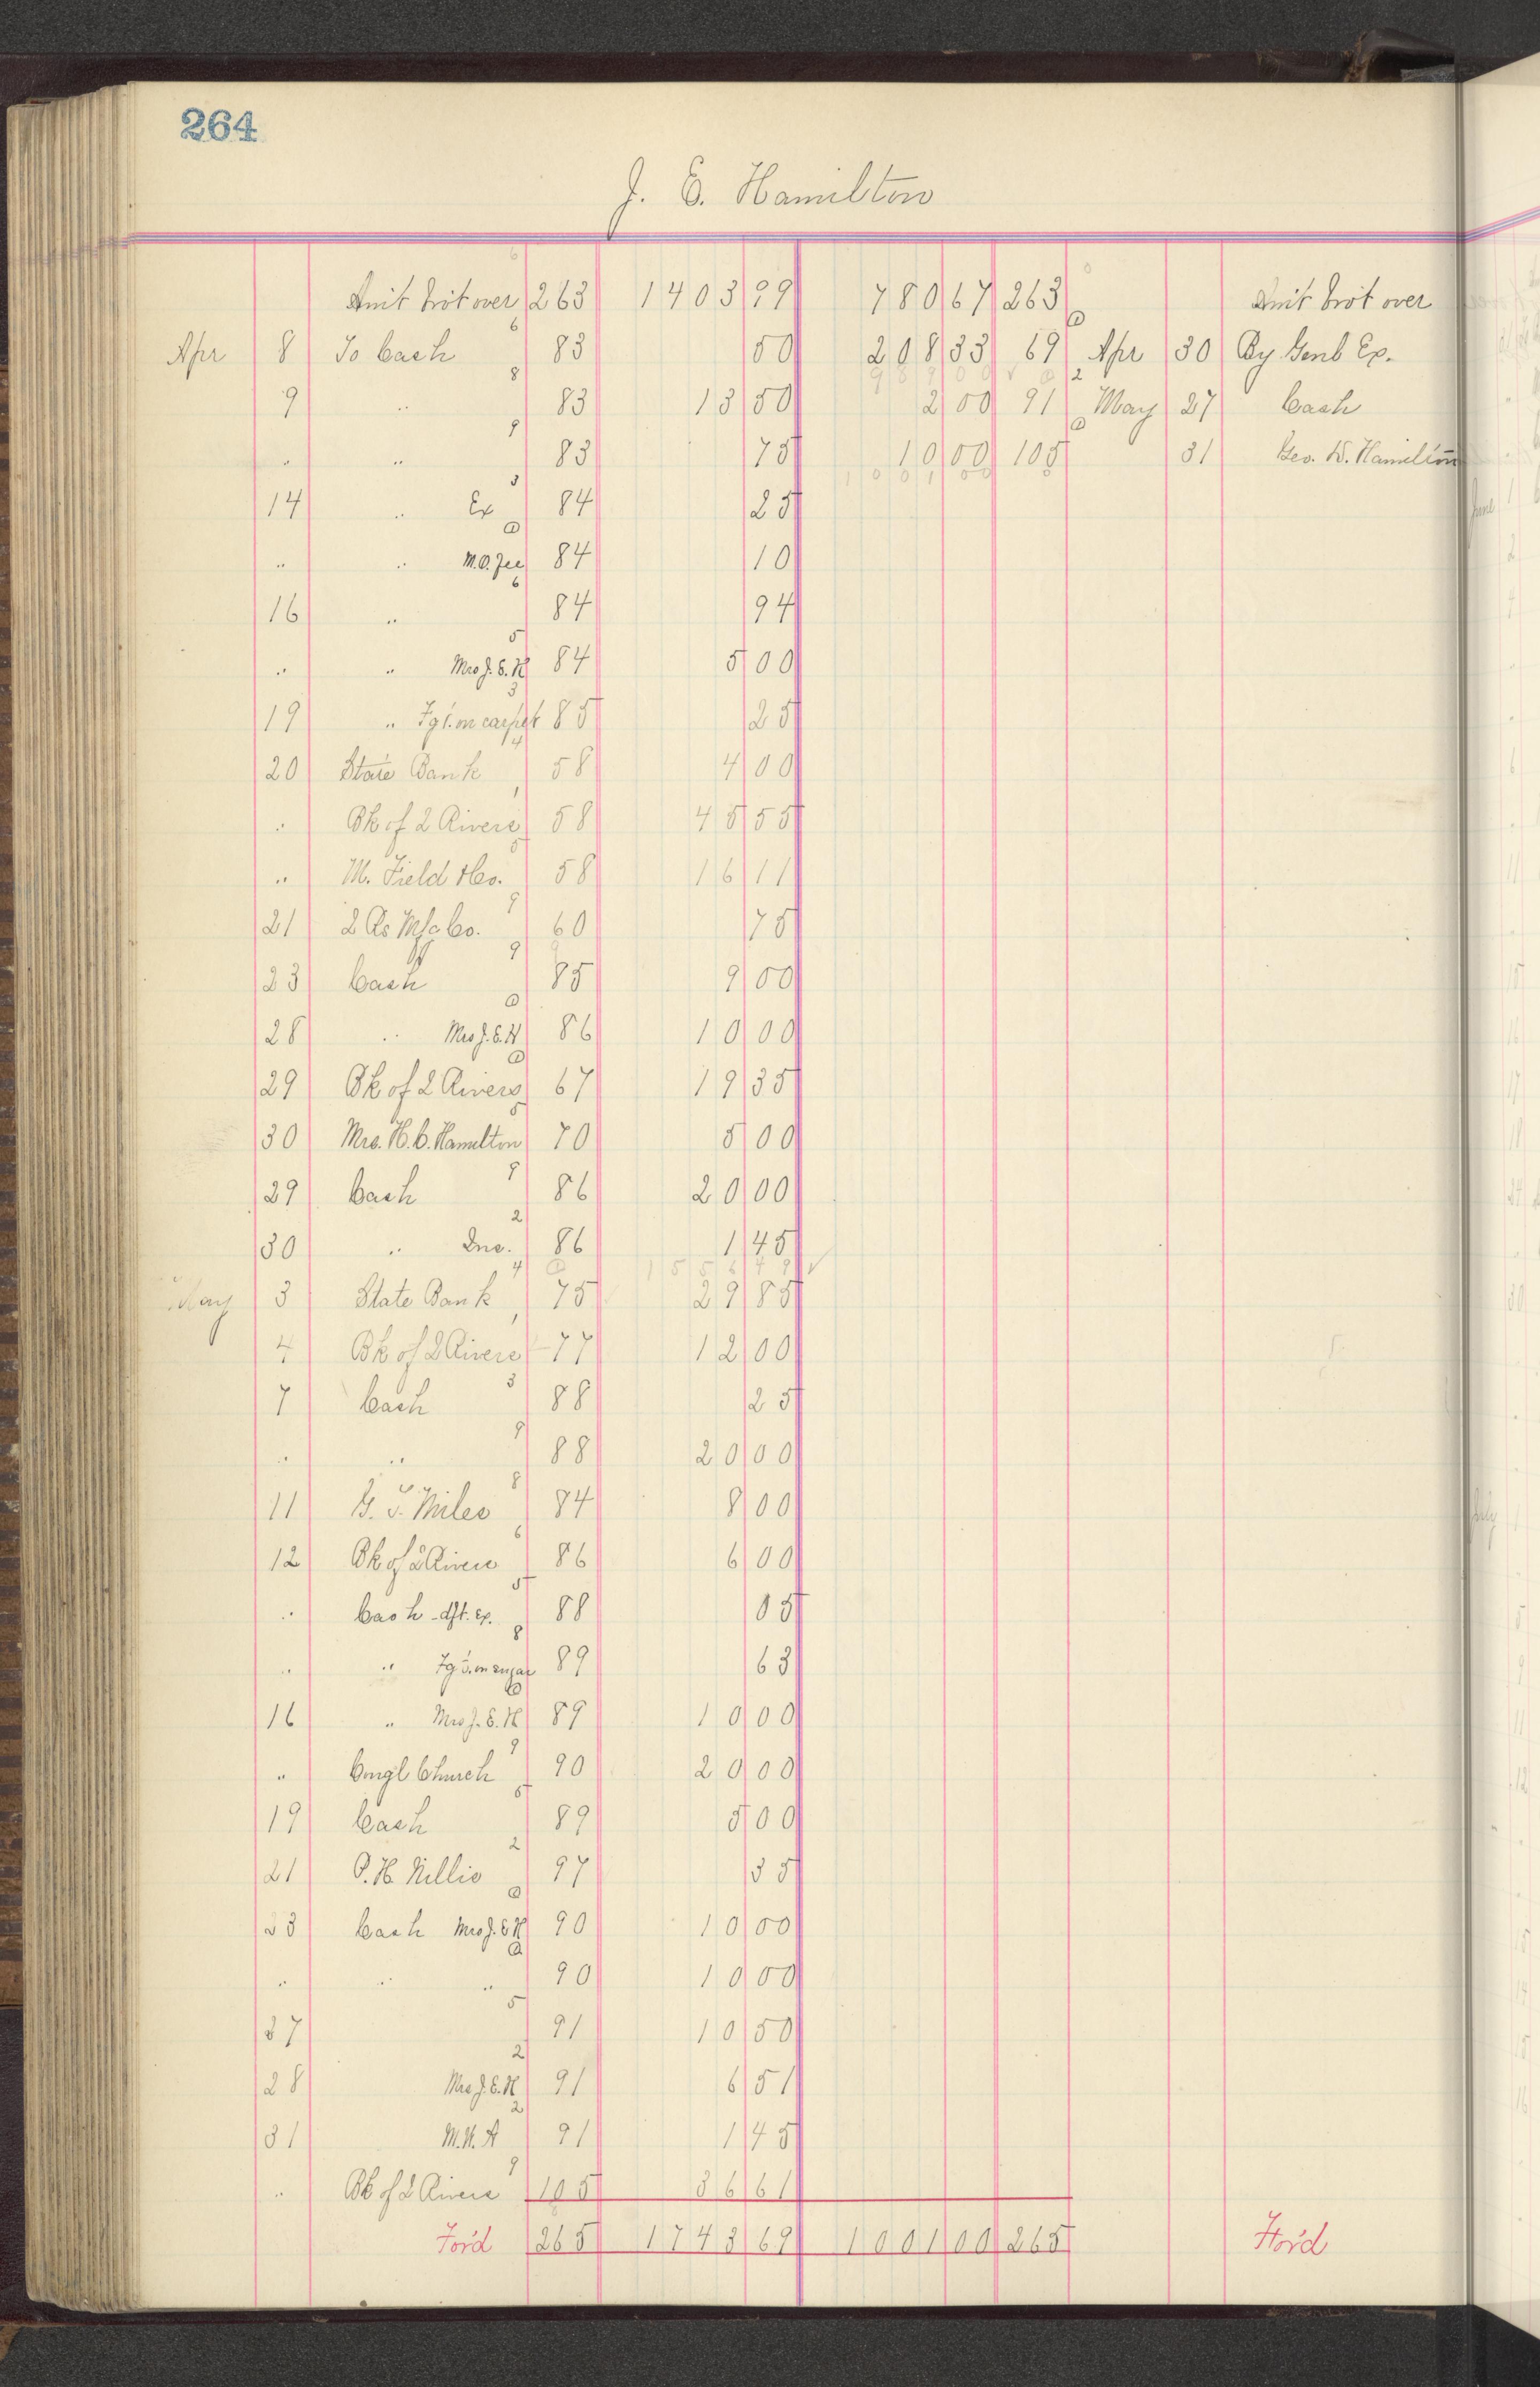 264
J. E. Hamilton
Amt brôt over 263 1403 99 780 67 263 Amt brôt over
Apr 8 To Cash 6 83 50 208 33 69 Apr 30 By Genl Ex.
9 " 8 83 13 50 2 00 91 2 May 27 Cash
" " 9 83 75 10 00 105 31 Geo. W. Hamilton
14 " Ex 3 84 25
" " M.O. Fee 84 10
16 " 6 84 94
" " Mrs J. E. H 5 84 5 00
19 " Fgt. on carpet 3 85 25
20 State Bank 4 58 4 00
" Bk of 2 Rivers 1 58 45 55
" M. Field & Co. 5 58 16 11
21 2 Rs Mfg Co. 9 60 75
23 Cash 9 85 9 00
28 " Mrs J. E. H 86 10 00
29 Bk of 2 Rivers 67 19 35
30 Mrs. H. C. Hamilton 5 70 5 00
29 Cash 9 86 20 00
30 " Ins. 2 86 1 45
1556 49 ✓
May 3 State Bank 4 75 29 85
4 Bk of 2 Rivers 1 77 12 00
7 Cash 3 88 25
" " 9 88 20 00
11 G. T. Miles 8 84 8 00
12 Bk of 2 Rivers 6 86 6 00
" Cash - dft. ex. 5 88 05
" " Fgt. on sugar 8 89 63
16 " Mrs J. E. H 89 10 00
" Congl Church 9 90 20 00
19 Cash 5 89 5 00
21 P. H. Nillis 2 97 35
23 Cash Mrs J. E. H 90 10 00
" " " 90 10 00
27 5 91 10 50
28 Mrs J. E. H 2 91 6 51
31 M.W.A 2 91 1 45
" Bk of 2 Rivers 9 105 36 61
Fo'd 265 1743 69 1001 00 265 Fo'd